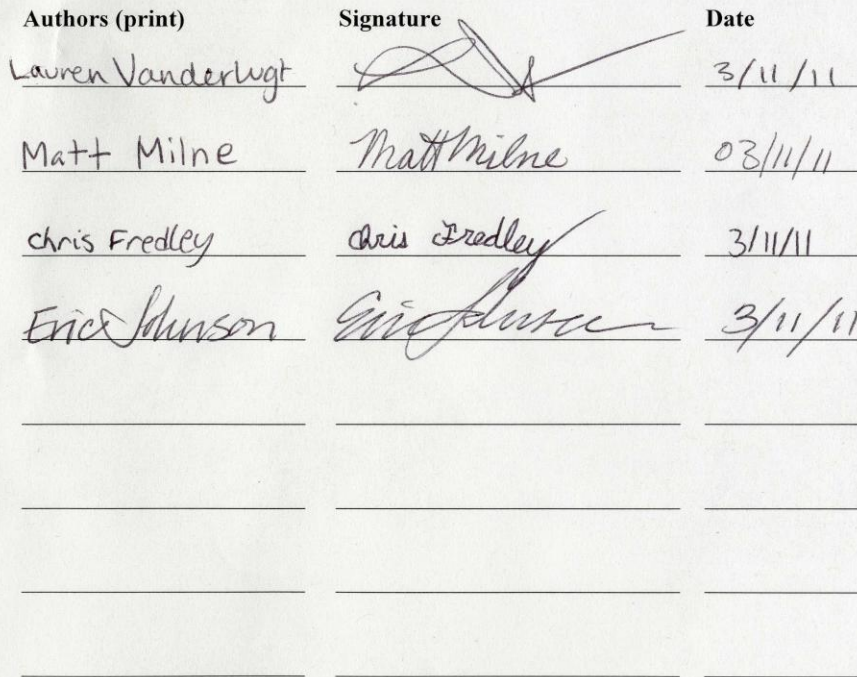 Authors (print) Signature Date
Lauren Vanderlugt 3/11/11
Matt Milne Matt Milne 03/11/11
Chris Fredley Chris Fredley 3/11/11
Eric Johnson Eric Johnson 3/11/11